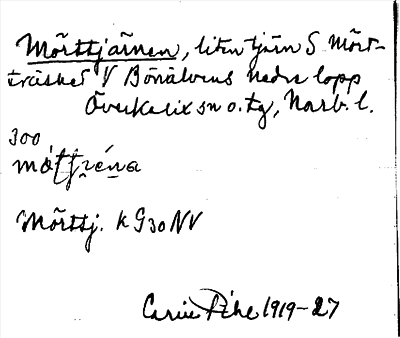 Mörttjärnen, liten tjärn S Mört-
träsket V Bönälvens nedre lopp
Överkalix sn o. tg, Norrb. l.
300
Mörttj. k G30 NV
Carin Pihl 1919-27